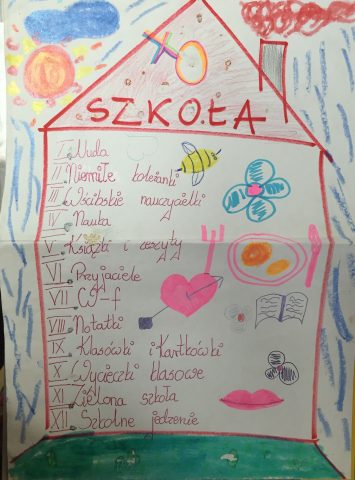 XO
SZKOŁA
I. Nuda
II. Niemiłe koleżanki
III. Wścibskie nauczycielki
IV. Nauka
V. Książki i zeszyty
VI. Przyjaciele
VII.
VIII. Notatki
IX. Klasówki i Kartkówki
X. Wycieczki klasowe
XI. Zielona szkoła
XII. Szkolne jedzenie